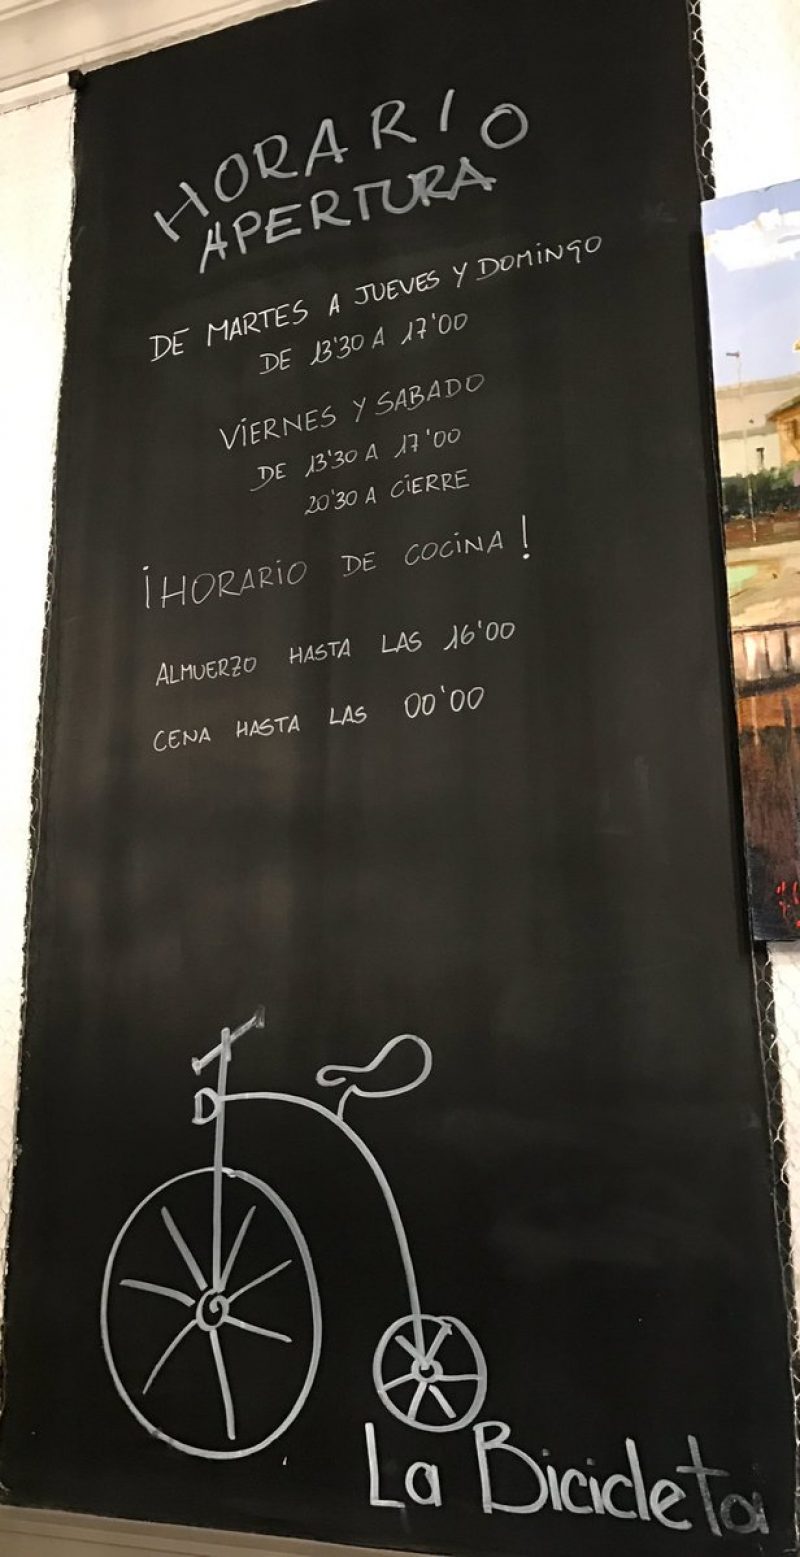 HORARIO
APERTURA
DE MARTES A JUEVES Y DOMINGO
DE 13'30 A 17'00
VIERNES Y SABADO
DE 13'30 A 17'00
20'30 A CIERRE
¡HORARIO DE COCINA!
ALMUERZO HASTA LAS 16'00
CENA HASTA LAS 00'00
La Bicicleta